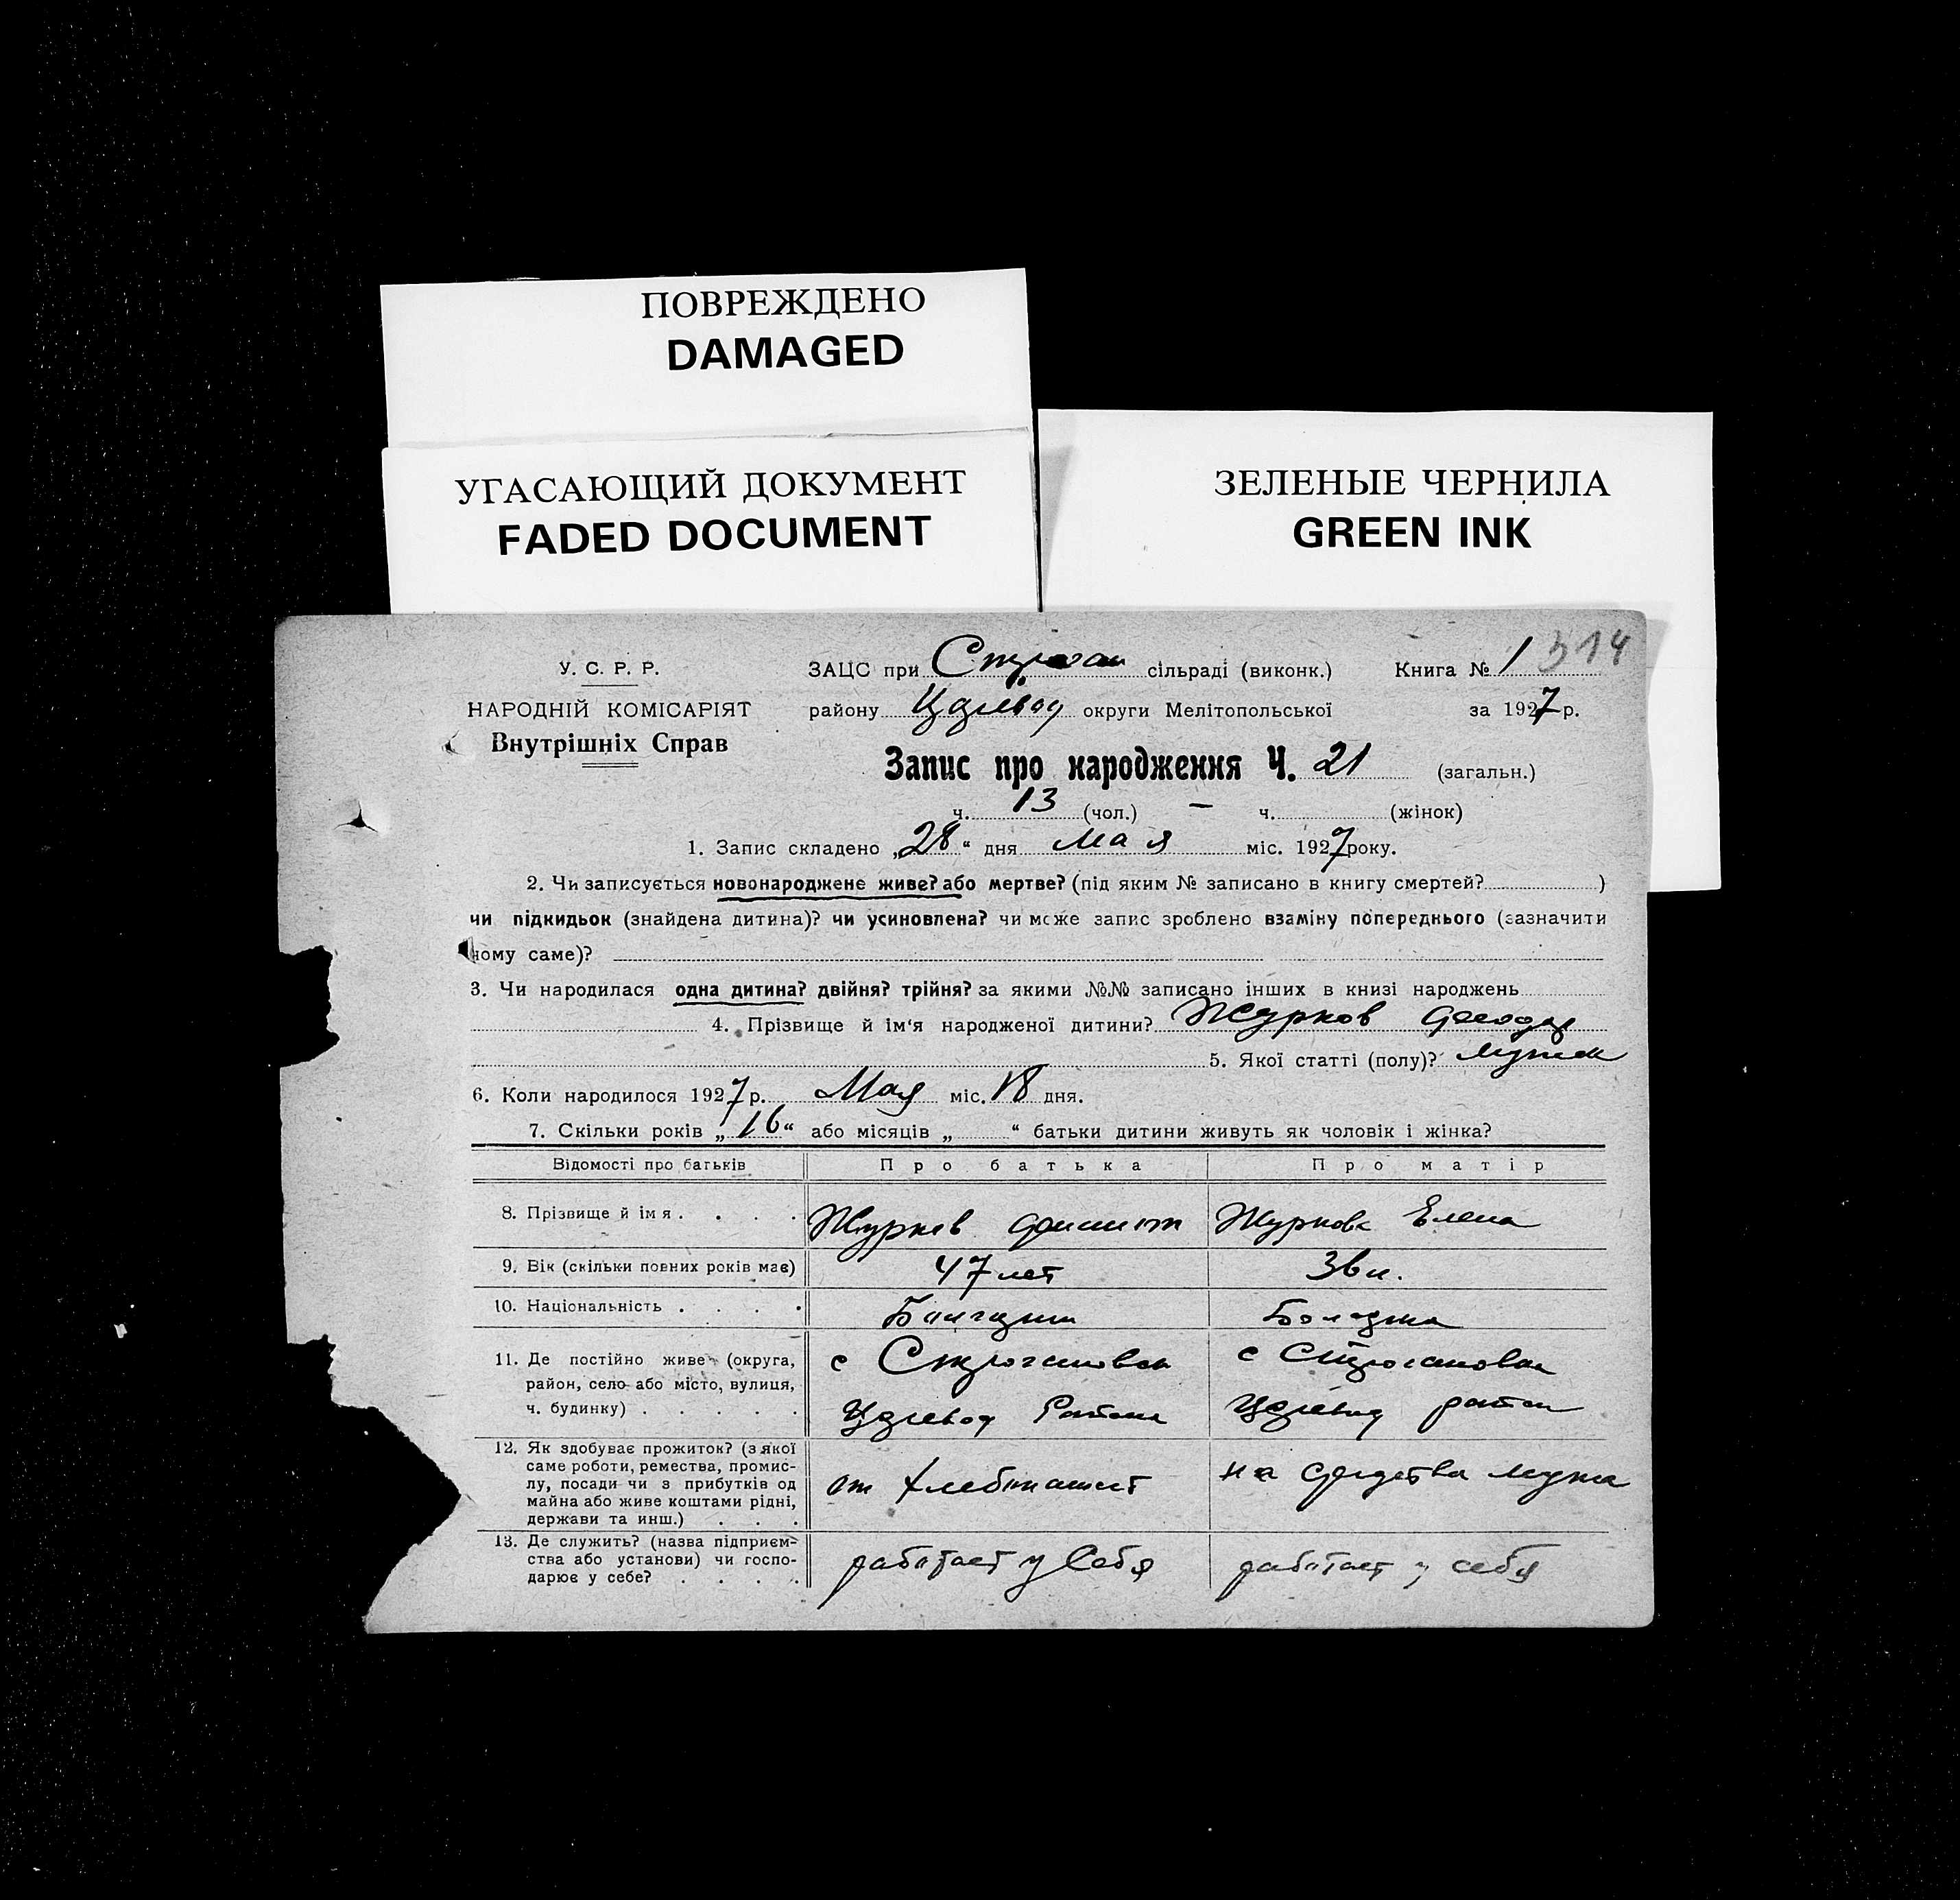 ПОВРЕЖДЕНО
DAMAGED
УГАСАЮЩИЙ ДОКУМЕНТ
FADED DOCUMENT
ЗЕЛЕНЫЕ ЧЕРНИЛА
GREEN INK
У. С. Р. Р.
НАРОДНІЙ КОМІСАРІЯТ
Внутрішніх Справ
ЗАЦС при Строган сільраді (виконк.) Книга № 1 314
району округи Мелітопольської за 1927 р.
Запис про народження Ч. 21 (загальн.)
ч. 13 (чол.) – ч. (жінок)
1. Запис складено „28“ дня Мая міс. 1927 року.
2. Чи записується новонароджене живе? або мертве? (під яким № записано в книгу смертей? )
чи підкидьок (знайдена дитина)? чи усиновлена? чи може запис зроблено взаміну попереднього (зазначити
чому саме)?
3. Чи народилася одна дитина? двійня? трійня? за якими №№ записано інших в книзі народжень
4. Прізвище й ім'я народженої дитини? Журков
5. Якої статті (полу)? мужск
6. Коли народилося 1927 р. Мая міс. 18 дня.
7. Скільки років „16“ або місяців „ “ батьки дитини живуть як чоловік і жінка?
Відомості про батьків Про батька Про матір
8. Прізвище й імя . . . . Журков Журкова Елена
9. Вік (скільки повних років має) 47 лет 36 л.
10. Національність . . . .
11. Де постійно живе (округа,
район, село або місто, вулиця,
ч. будинку) . . . . .
с Строгановка
Района
с Строгановка
район
12. Як здобуває прожиток? (з якої
саме роботи, ремества, промис-
лу, посади чи з прибутків од
майна або живе коштами рідні,
держави та инш.) . . .
от хлебопашест
на средства мужа
13. Де служить? (назва підприєм-
ства або установи) чи госпо-
дарює у себе? . . . .
работает у Себя
работает у себя